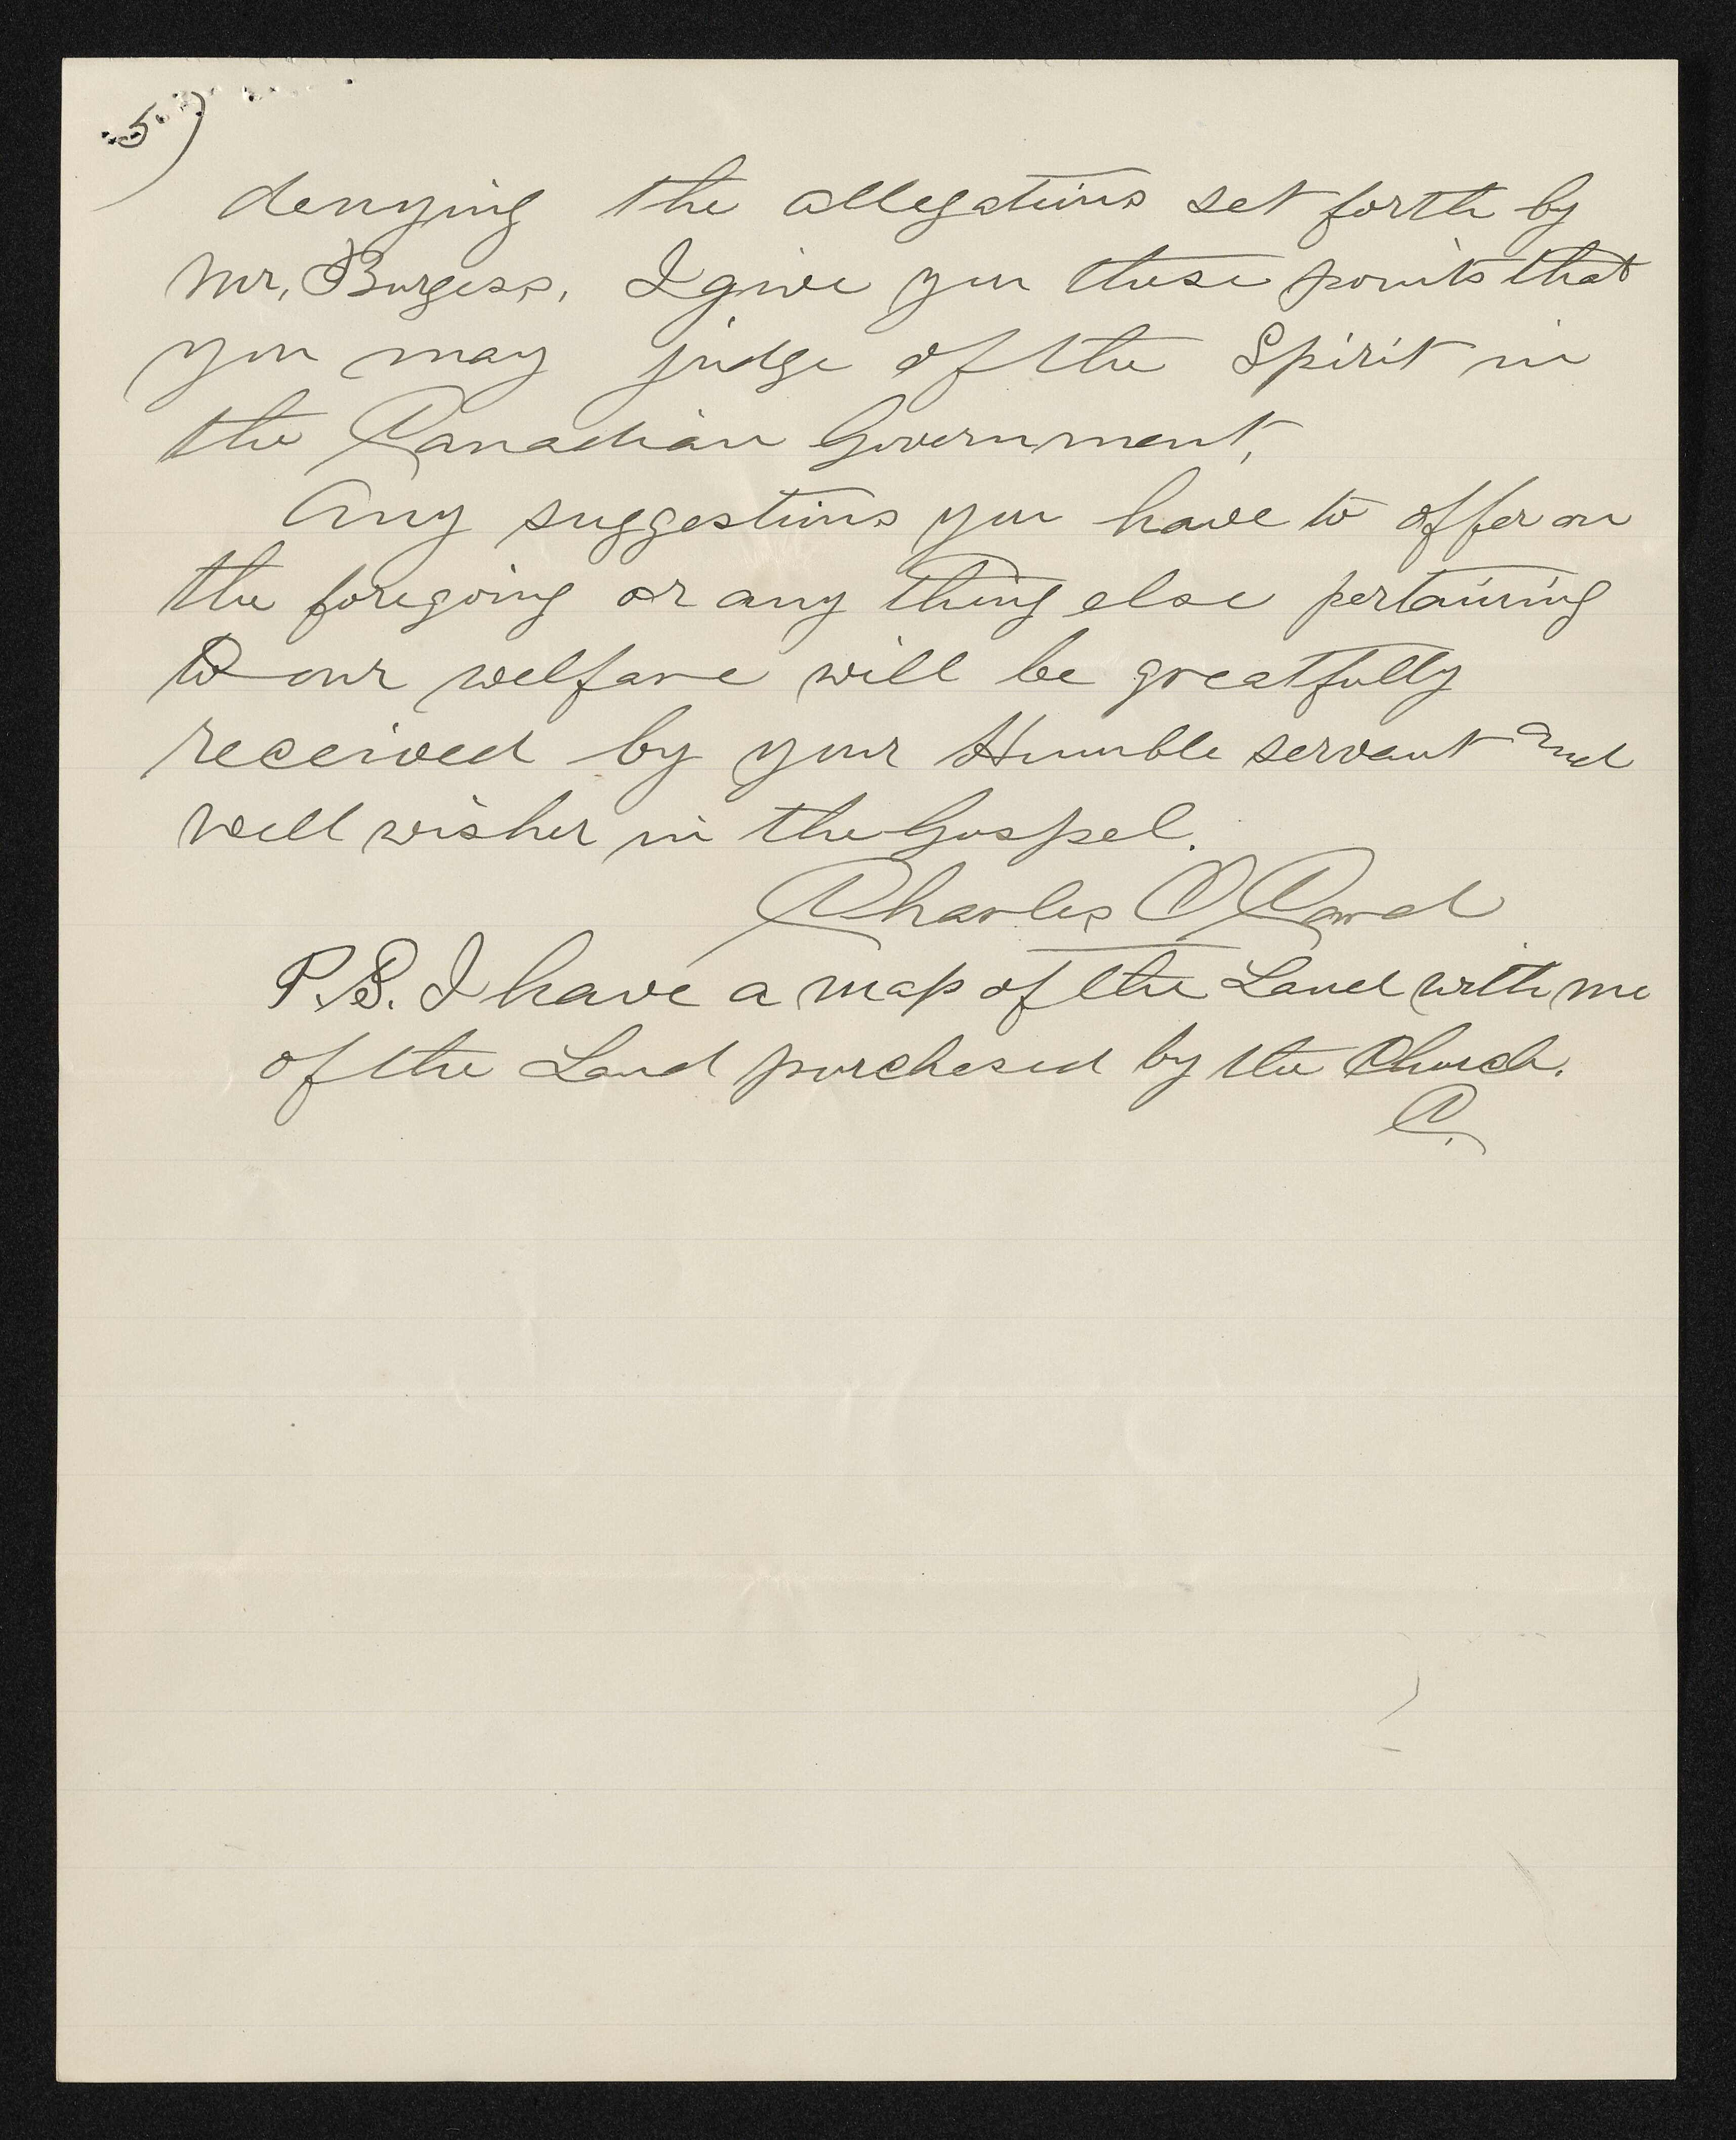 5)
denying the allegations set forth by
Mr, Burgess, I give you these points that
you may judge of the Spirit in
the Canadian Government,
Any suggestions you have to offer on
the foregoing or any thing else pertaining
to our welfare will be greatfully
received by your Humble servant and
well wisher in the Gospel.
Charles O Card
P.S. I have a map of the Land with me
of the Land purchased by the Church.
C.